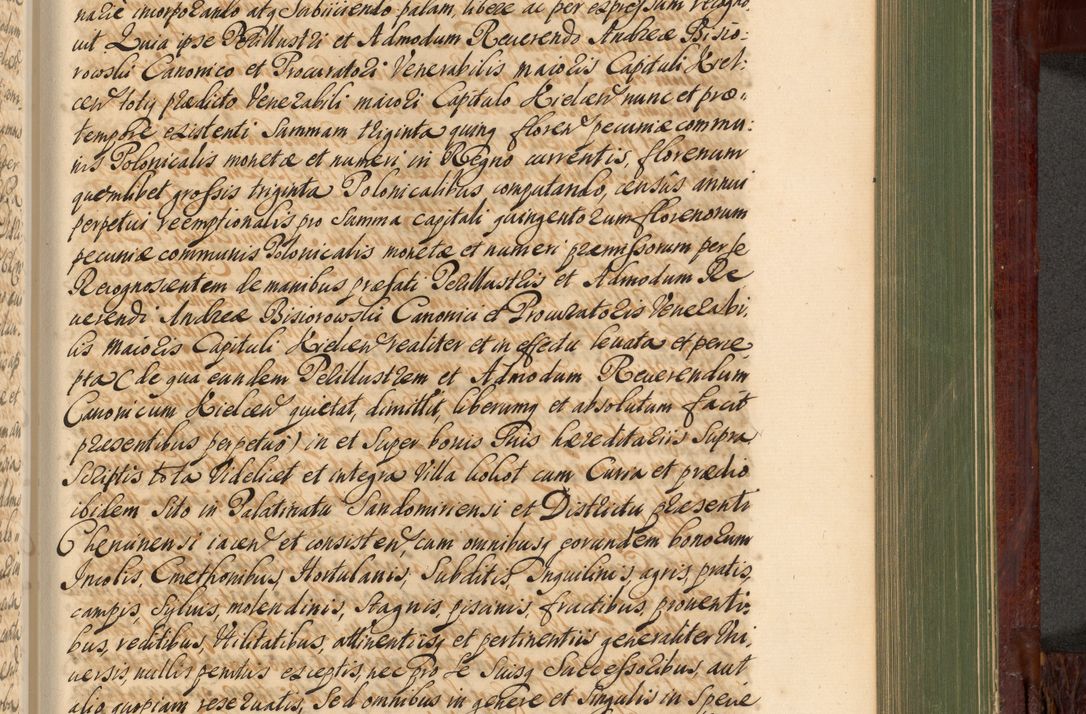 narie incorporando atq Subiiciendo palam, libere ac per expressum recogno
uit Quia ipse Perillustri et Admodum Reuerendo Andreæ Bisio:
rowski Canonico et Procuratori Venerabilis maioris Capituli Kiel:
cen toty prædicto Venerabili maiori Capitulo Kielcen nunc et pro
tempore existenti Summam triginta quinq floren pecuniæ commu:
nis Polonicalis monetæ et numeri in Regno currentis, florenum
quemlibet grossis triginta Polonicalibus computando, censûs annui
perpetui reemptionalis pro Summa capitali quingentorum florenorum
pecuniæ communis Polonicalis monetæ et numeri præmissorum per se
Recognoscentem de manibus præfati Perillustris et Admodum Re
uerendi Andreæ Bisiorowski Canonici et Procuratoris Venerabi,
lis maioris Capituli Kielcen realiter et in effectu leuata et perce
pta (de qua eundem Perillustrem et Admodum Reuerendum
Canonicum Kielcen quietat, dimittit, liberumq et absolutum facit
præsentibus perpetuo) in et Super bonis Suis hæreditariis Supra
Scriptis tota Videlicet et integra Villa cum Curia et prædio
ibidem Sito in Palatinatu Sandomiriensi et Districtu præsenti
Chencinensi iacen et consisten, cum omnibusq eorundem bonorum
Incolis, Cmethonibus, Hortulanis, Subditis Inquilinis, agris, pratis,
campis, Syluis, molendinis, Stagnis, piscinis, fructibus, prouenti:
bus, reditibus, Utilitatibus, attinentiisq et pertinentiis generaliter Uni
uersis, nullis penitus exceptis, nec pro Se Suisq Successoribus, aut
alio quopiam reseruatis, Sed omnibus in genere et Singulis in Specie